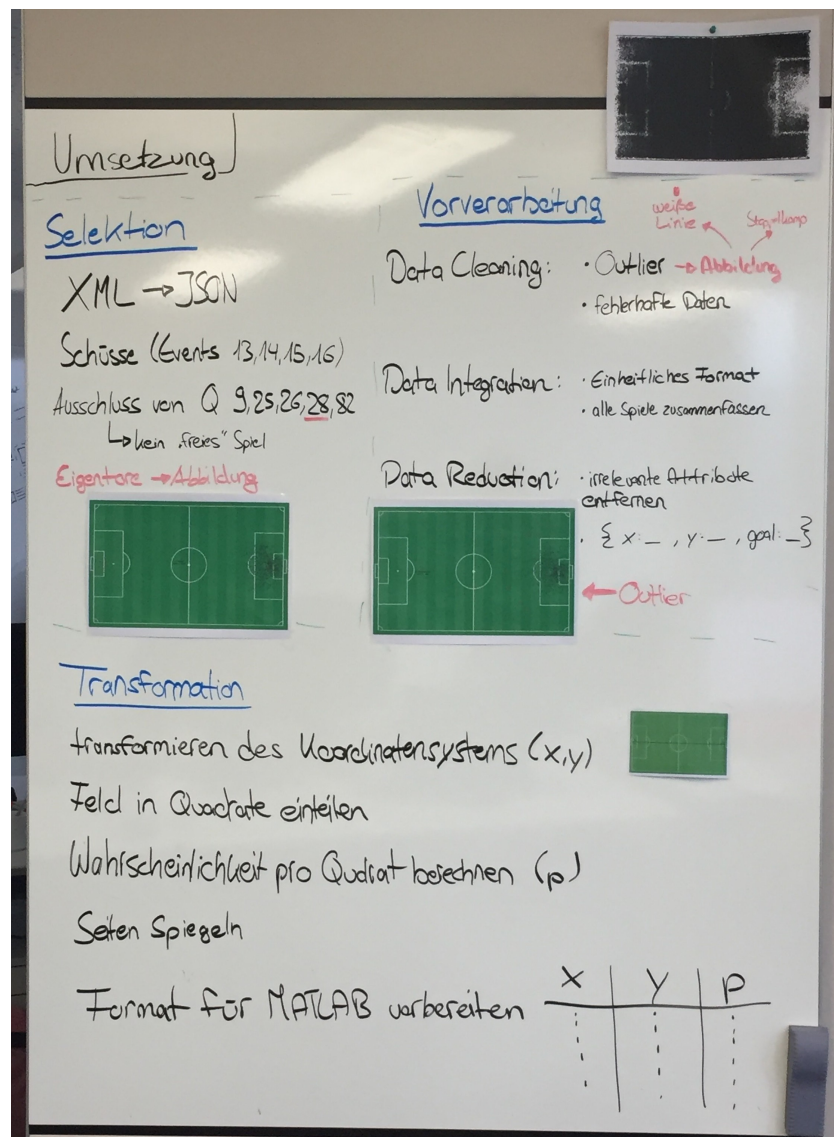 Umsetzung
Selektion
XML → JSON
Schüsse (Events 13,14,15,16)
Ausschluss von Q 9,25,26,28,82
↳ kein "freies" Spiel
Eigentore → Abbildung
Vorverarbeitung
weiße
Linie
Data Cleaning:
• Outlier → Abbildung
• fehlerhafte Daten
Data Integration:
• Einheitliches Format
• alle Spiele zusammenfassen
Data Reduction:
• irrelevante Attribute
entfernen
• { x:_ , y:_ , goal:_ }
← Outlier
Transformation
transformieren des Koordinatensystems (x,y)
Feld in Quadrate einteilen
Wahrscheinlichkeit pro Qudrat berechnen (p)
Seiten Spiegeln
Format für MATLAB vorbereiten
X Y P